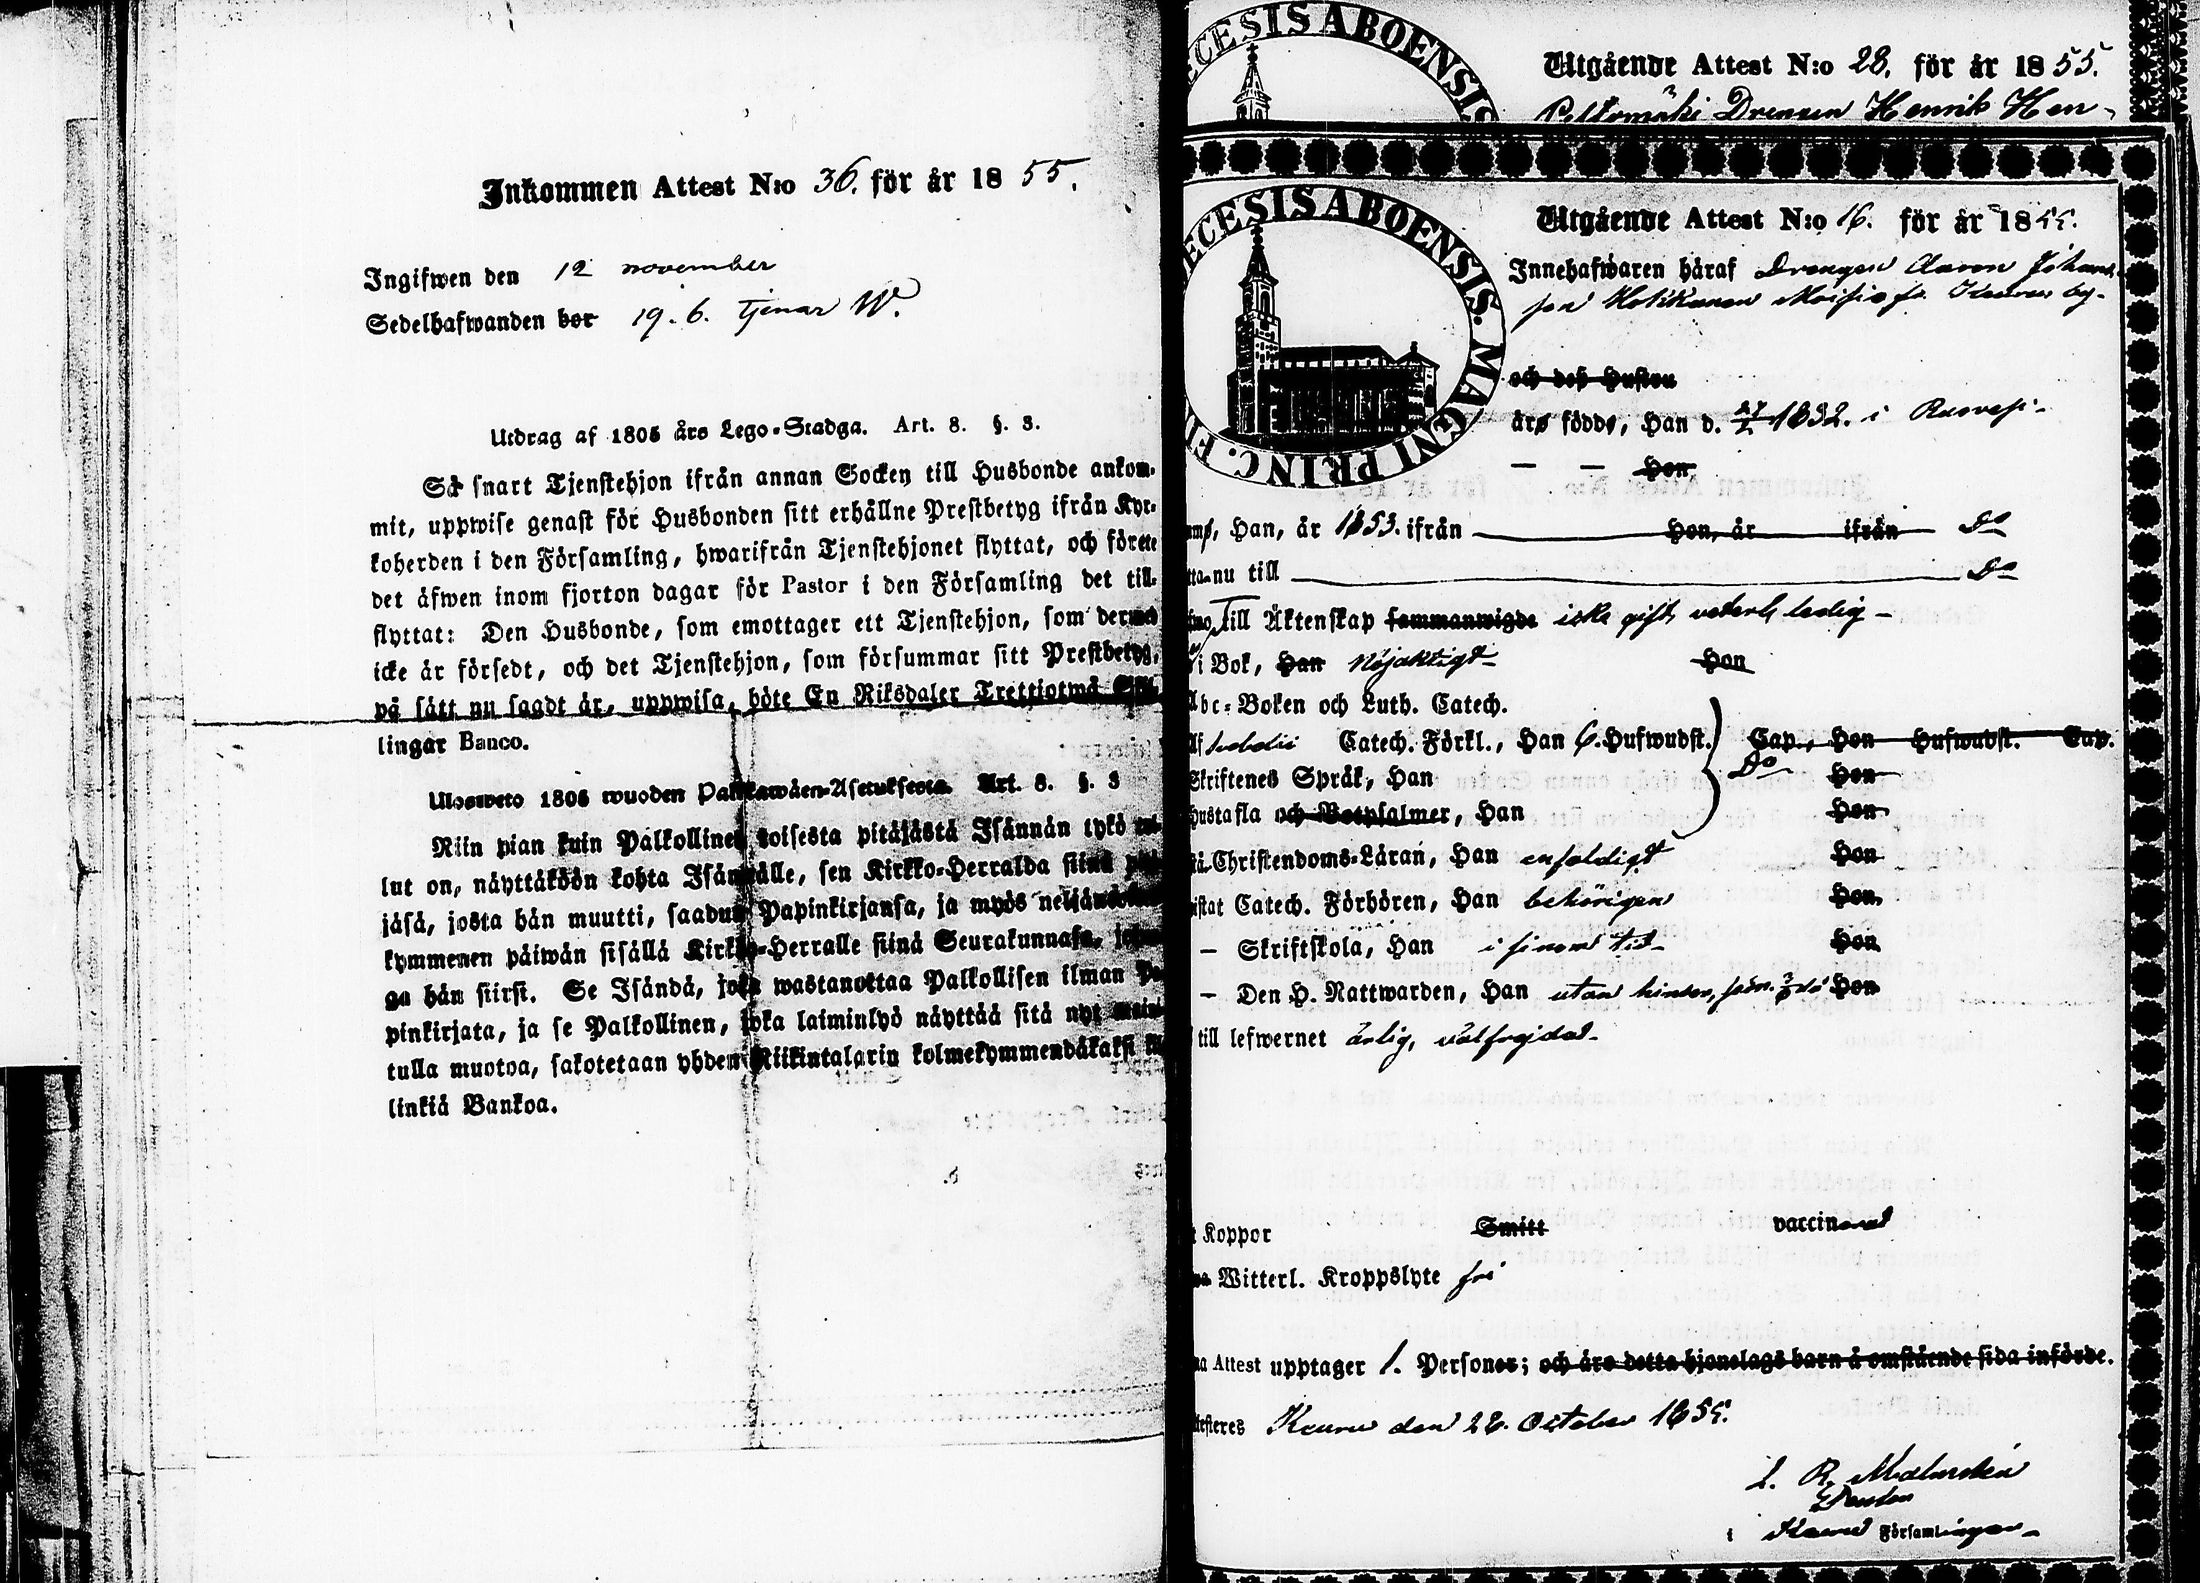 Inkommen Attest N:o 36. för år 1855.
Ingifwen den 12 november
Sedelhafwanden bor 19. 6. tjenar W.
Utdrag af 1805 års Lego-Stadga. Art. 8. §. 3.
Så snart Tjenstehjon ifrån annan Socken till Husbonde ankom-
mit, uppwise genast för Husbonden sitt erhållne Prestbetyg ifrån Kyr-
koherden i den Församling, hwarifrån Tjenstehjonet flyttat, och förete
det äfwen inom fjorton dagar för Pastor i den Församling det till-
flyttat: Den Husbonde, som emottager ett Tjenstehjon, som dermed
icke är försedt, och det Tjenstehjon, som försummar sitt Prestbetyg,
på sätt nu sagdt är, uppwisa, böte En Riksdaler Trettiotwå Skil-
lingar Banco.
Ulosweto 1805 wuoden Palkkawäen-Asetuksesta. Art. 8. §. 3
Niin pian kuin Palkollinen toisesta pitäjästä Isännän tykö
lut on, näyttäköön kohta Isännälle, sen Kirkko-Herralda siinä
jäsä, josta hän muutti, saadun Papinkirjansa, ja myös neljäntoista
kymmenen päiwän sisällä Kirkko-Herralle siinä Seurakunnasa,
ga hän siirsi. Se Isändä, joka wastanottaa Palkollisen ilman Pa-
pinkirjata, ja se Palkollinen, joka laiminlyö näyttää sitä nyt
tulla muotoa, sakotetaan yhden Riikintalarin kolmekymmendäkaksi
linkiä Bankoa.
ECESIS ABOENSIS
Utgående Attest N:o 28. för år 1855.
Peltomäki Drengen Henrik Hen-
ECESIS ABOENSIS. MAGNI PRINC. FI
Utgående Attest N:o 16. för år 1855.
Innehafwaren häraf Drengen Aaron Johans-
son Moisio fr. Keuru by.
och deß Hustru
äro födde, Han d. 1832. i Ruovesi
— — Hon
Han, år 1853. ifrån Hon, år ifrån Do
nu till Do
till Äktenskap sammanwigde icke gift, veterl. ledig
i Bok, Han Nöjaktigt Hon
Abc-Boken och Luth. Catech.
Af Catech. Förkl., Han 6. Hufwudst. Cap., Hon Hufwudst. Cap.
Skriftenes Språk, Han Do Hon
Hustafla och Botpsalmer, Han Hon
Christendoms-Läran, Han enfaldigt Hon
Catech. Förhören, Han behörigen Hon
— Skriftskola, Han i sinom tid Hon
— Den H. Nattwarden, Han utan hinder, Hon
till lefwernet ärlig, välfrejdad
Koppor Smitt vaccinerad
Witterl. Kroppslyte fri
Attest upptager 1. Personer; och äro detta hjonelags barn å omstående sida införde.
Keuru den 26. October 1855.
Pastor
i Keuru Församlingar